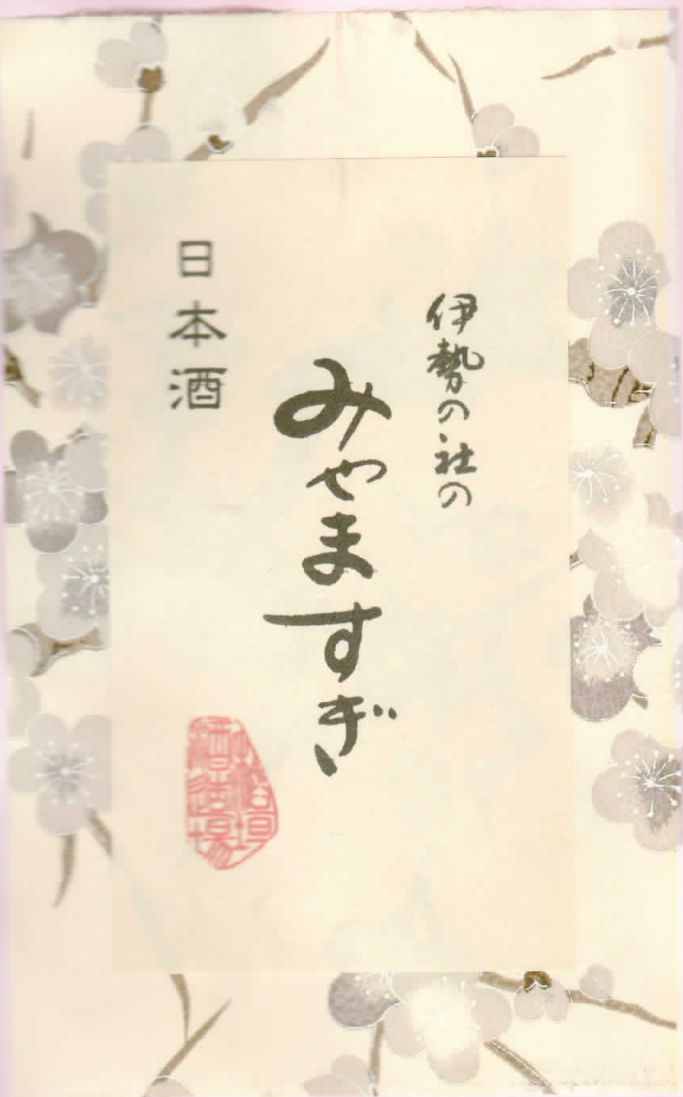 伊勢の社の
みやますぎ
日本酒